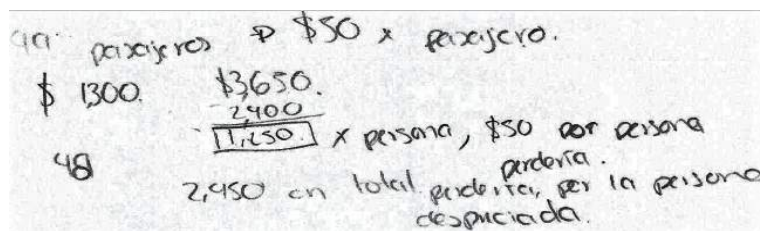 49 pasajeros → $50 x pasajero.
$ 1300. $3,650.
- 2,400
1,250. x persona, $50 por persona
48 perdería.
2,450 en total perdería, por la persona
despreciada.